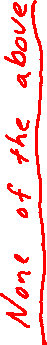 None of the above